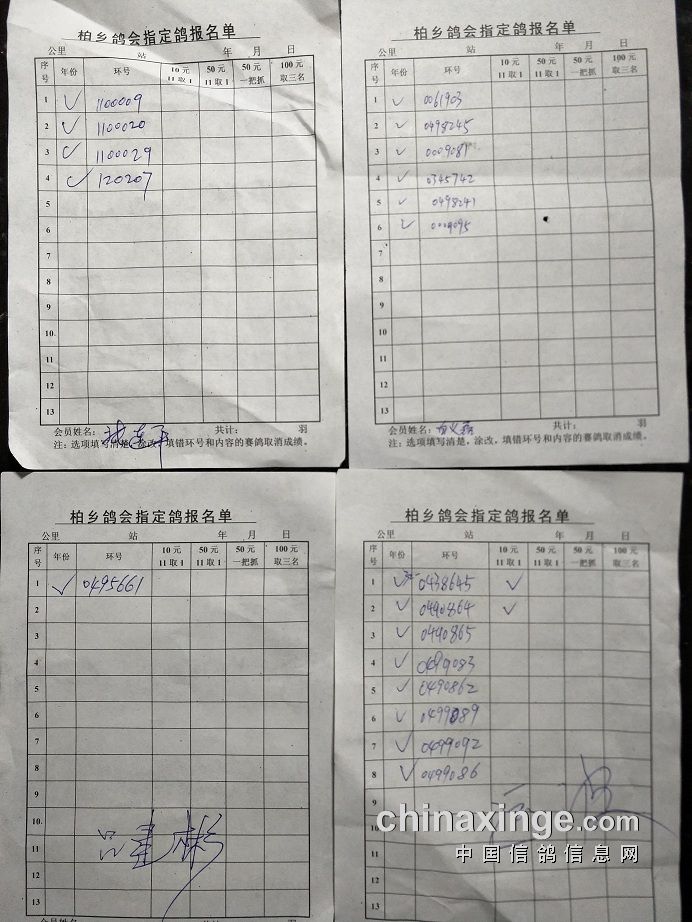 柏乡鸽会指定鸽报名单
公里 站 年 月 日
序号 年份 环号 10元11取1 50元11取1 50元一把抓 100元取三名
1 ✓ 1100009
2 ✓ 1100020
3 ✓ 1100029
4 ✓ 120207
5
6
7
8
9
10
11
12
13
会员姓名: 共计: 羽
注:选项填写清楚,涂改,填错环号和内容的赛鸽取消成绩。
柏乡鸽会指定鸽报名单
公里 站 年 月 日
序号 年份 环号 10元11取1 50元11取1 50元一把抓 100元取三名
1 ✓ 0061903
2 ✓ 0498245
3 ✓ 0009081
4 ✓ 0345742
5 ✓ 0498241
6 ✓ 0009095
7
8
9
10
11
12
13
会员姓名: 共计: 羽
注:选项填写清楚,涂改,填错环号和内容的赛鸽取消成绩。
柏乡鸽会指定鸽报名单
公里 站 年 月 日
序号 年份 环号 10元11取1 50元11取1 50元一把抓 100元取三名
1 ✓ 0495661
2
3
4
5
6
7
8
9
10
11
12
13
吕建彬
会员姓名: 共计: 羽
柏乡鸽会指定鸽报名单
公里 站 年 月 日
序号 年份 环号 10元11取1 50元11取1 50元一把抓 100元取三名
1 ✓ 0438645 ✓
2 ✓ 0490864 ✓
3 ✓ 0490865
4 ✓ 0499083
5 ✓ 0490862
6 ✓ 0499089
7 ✓ 0499092
8 ✓ 0499086
9
10
11
12
13
会员姓名: 共计: 羽
chinaxinge.com
中国信鸽信息网